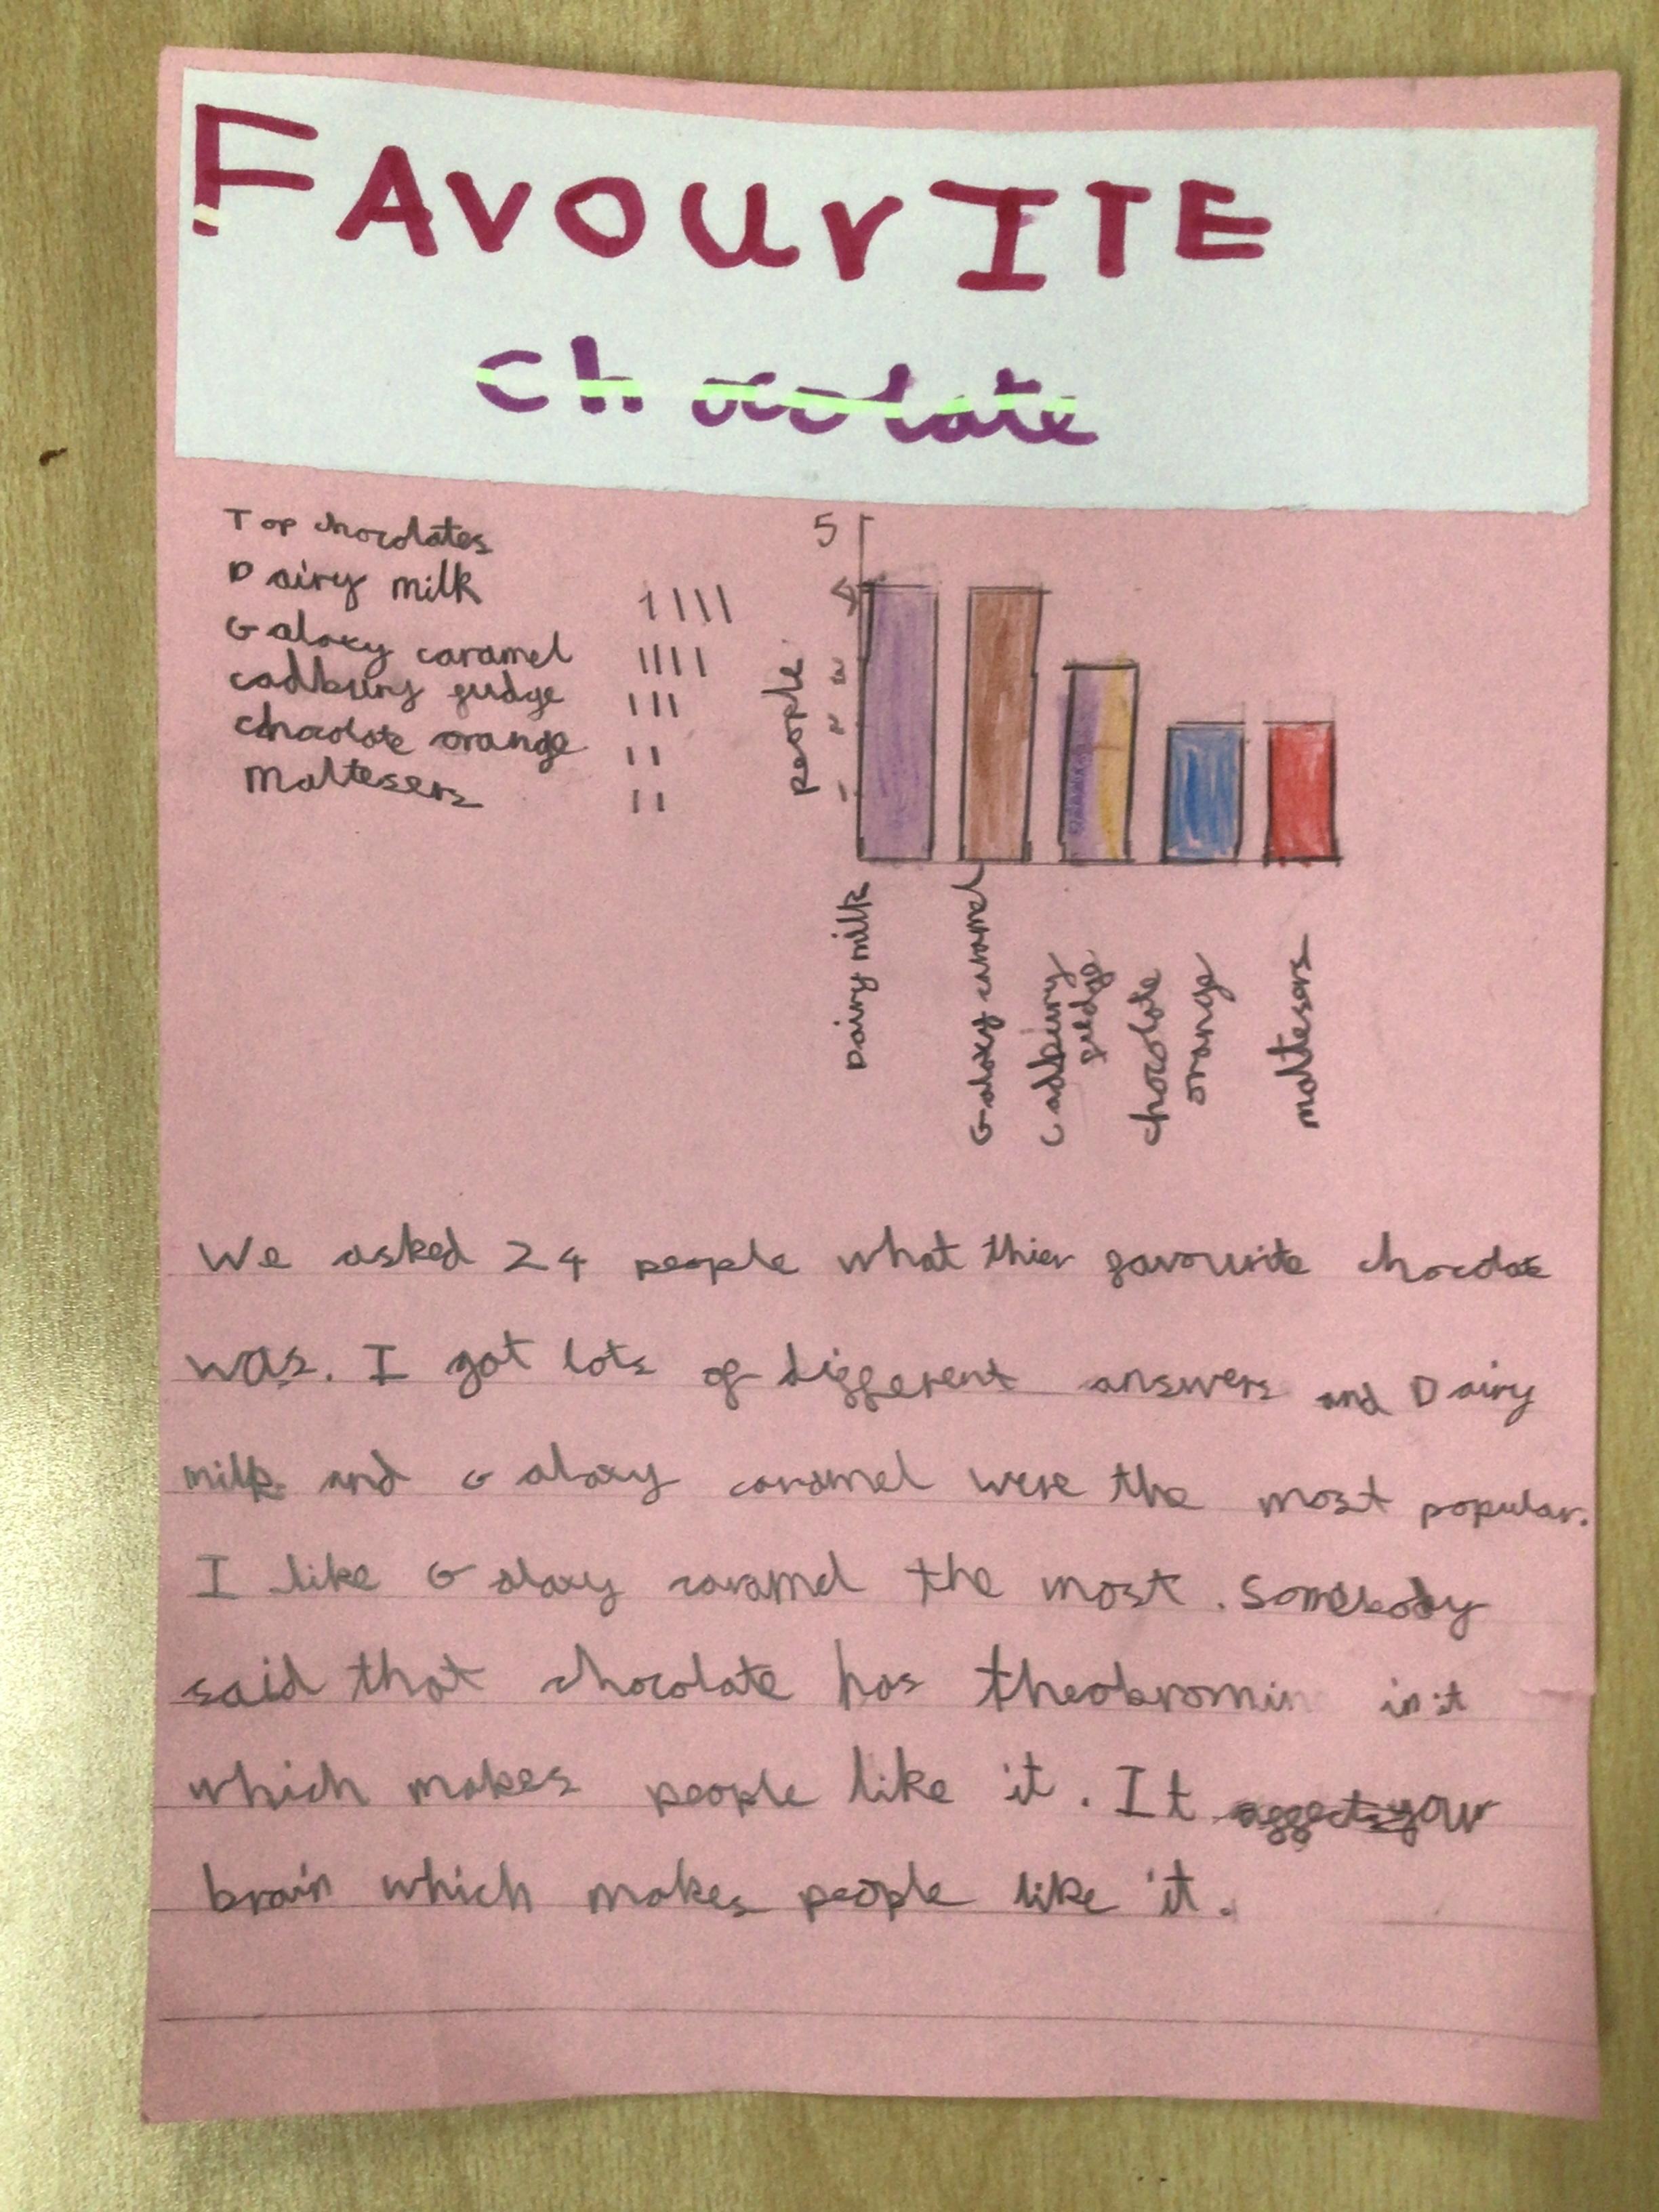 FAVOURITE
Chocolate
Top chocolates
Dairy milk 1111
Galaxy caramel 1111
cadbury fudge 111
chocolate orange 11
Maltesers 11
5
4
3
2
1
people
Dairy milk
Galaxy caramel
Cadbury fudge
chocolate orange
maltesers
We asked 24 people what thier favourite chocolate
was. I got lots of different answers and Dairy
milk and Galaxy caramel were the most popular.
I like Galaxy caramel the most. Somebody
said that chocolate has theobromin in it
which makes people like it. It affects your
brain which makes people like it.